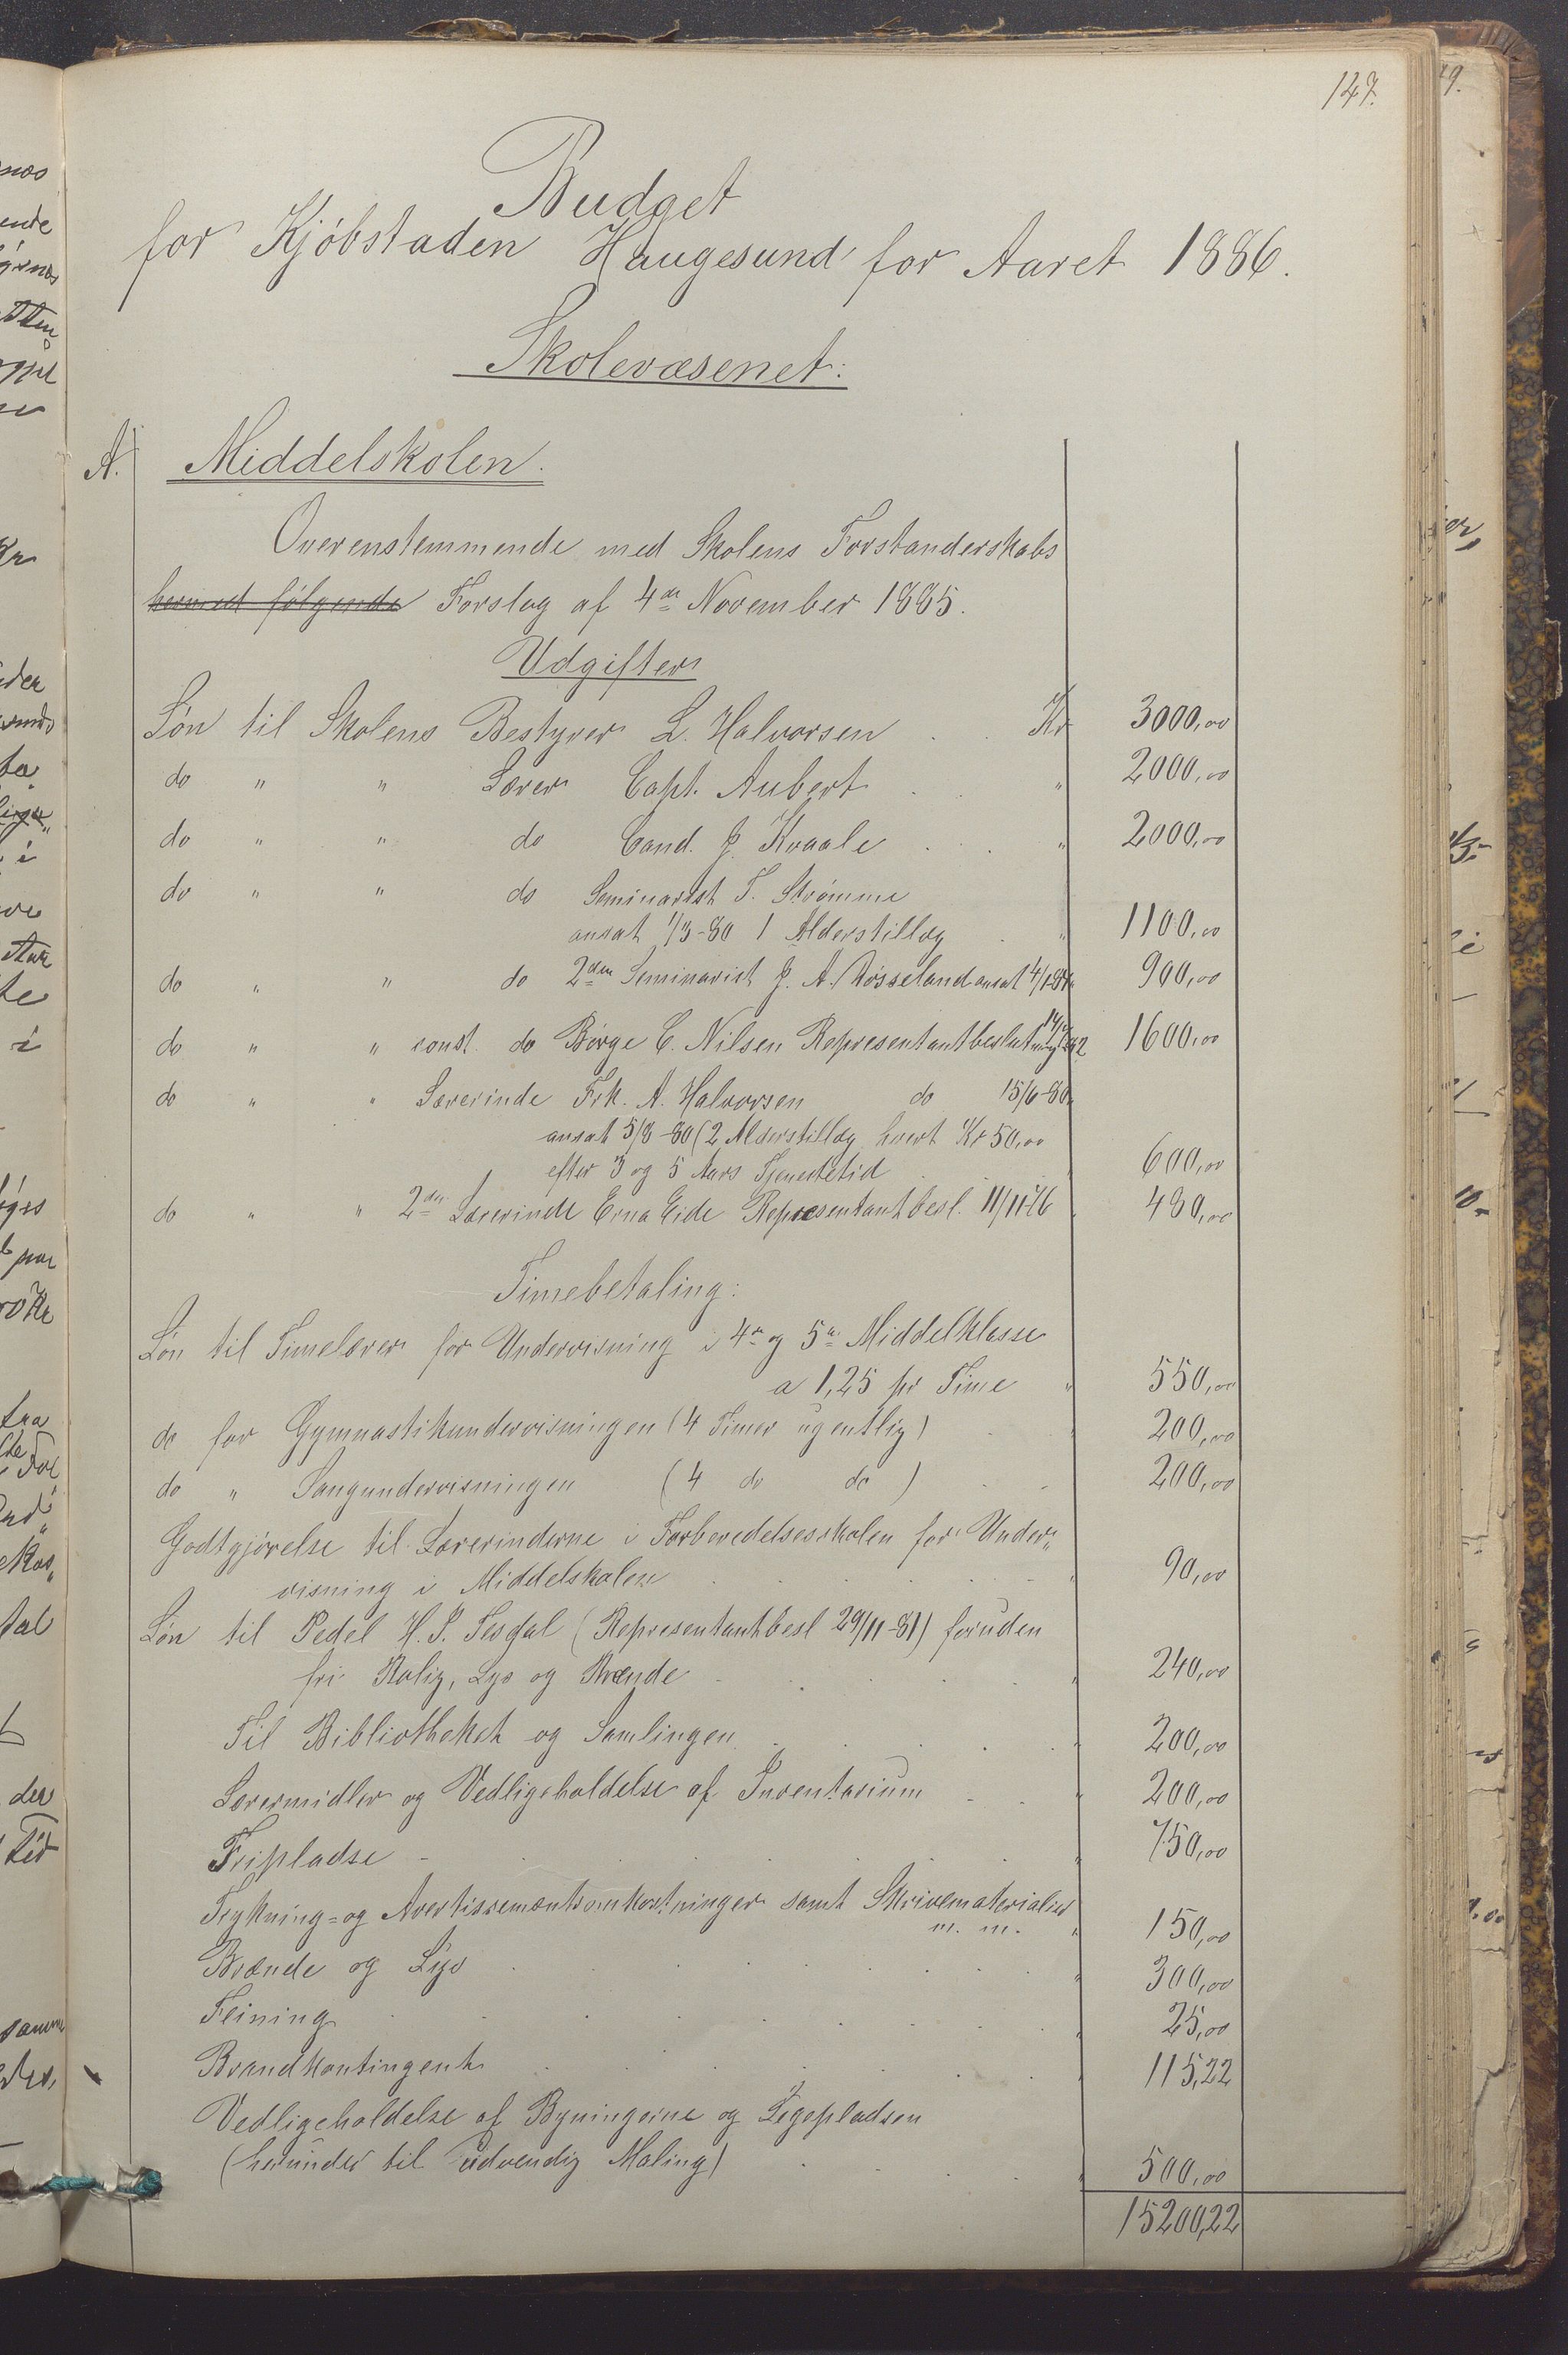 147.
Budget
for Kjöbstaden Haugesund for Aaret 1886.
Skolevæsenet:
A. Middelskolen.
Overenstemmende med Skolens Forstanderskabs
hermed følgende Forslag af 4de November 1885.
Udgifter
Løn til Skolens Bestyrer L. Halvorsen . . Kr 3000,00
do " " Lærer Capt. Aubert . . " 2000,00
do " " do Cand. J. Kvaale . . . " 2000,00
do " " do Seminarist T. Strømme
ansat 1/3-80 1 Alderstillæg . " 1100,00
do " " do 2den Seminarist J. A. Røsseland ansat 4/1-84 900,00
do " " const. do Børge C. Nilsen Representantbeslutning 1600,00
do " " Lærerinde Frk. A. Halvorsen do 15/6-80
ansat 5/8-80 (2 Alderstillæg hvert Kr 50,00
efter 3 og 5 Aars Tjenestetid . . " 600,00
do " " 2den Lærerinde Erna Eide Representantbesl. 11/11-76 480,00
Timebetaling:
Løn til Timelærer for Undervisning i 4de og 5te Middelklasse
a 1,25 pr Time " 550,00
do for Gymnastikundervisningen (4 Timer ugentlig) . " 200,00
do " Sangundervisningen (4 do do ) . . 200,00
Godtgjørelse til Lærerinderne i Forberedelsesskolen for Under„
visning i Middelskolen . . . . . " 90,00
Løn til Pedel H. P. Tesdal (Representantbesl 29/11-81) foruden
fri Bolig, Lys og Brænde . . . . . " 240,00
Til Bibliotheket og Samlingen . . . . " 200,00
Lærermidler og Vedligeholdelse af Inventarium . . " 200,00
Fripladse . . . . . . " 750,00
Trykning= og Avertissementsomkostninger samt Skrivematerialier
m. m. " 150,00
Brænde og Lys . . . . . . " 300,00
Feining . . . . . . " 25,00
Brandkontingent . . . . . " 115,22
Vedligeholdelse af Bygningerne og Legepladsen
(herunder til udvendig Maling) . . . " 500,00
15200,22